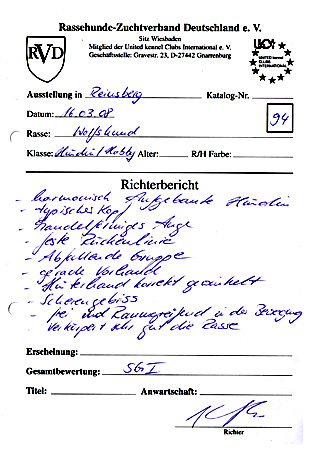 Rassehunde-Zuchtverband Deutschland e. V.
Sitz Wiesbaden
Mitglied der United kennel Clubs International e. V.
Geschäftsstelle: Gravestr. 23, D-27442 Gnarrenburg
RVD
UCI
UNITED KENNEL CLUBS INTERNATIONAL
Ausstellung in Reinsberg Katalog-Nr.
Datum: 16.03.08 94
Rasse: Wolfshund
Klasse: Hündin/ Alter: R/H Farbe:
Richterbericht
- harmonisch Aufgebaute Hündin
- typisches Kopf
- mandelförmiges Auge
- feste Rückenlinie
- Abfallende Gruppe
- gerade Vorhand
- Hinterhand korrekt gewinkelt
- Scherengebiss
- frei und Raumgreifend in der Bewegung
verkörpert sehr gut die Rasse
Erscheinung:
Gesamtbewertung: SG I
Titel: Anwartschaft:
Richter